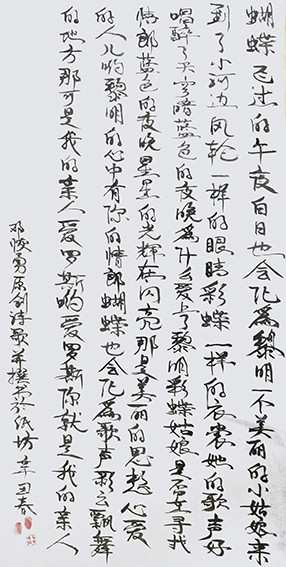 蝴蝶飞过的午夜白日也会化为黎明一个美丽的小姑娘来
到了小河边风轮一样的眼睛彩蝶一样的衣裳她的歌声好
唱醉了天空暗蓝色的夜晚为什么爱上了黎明彩蝶姑娘是否在寻找
情郎蓝色的夜晚星星的光辉在闪亮那是美丽的思愁心爱
的人儿哟黎明的心中有你的情郎蝴蝶也会化为歌声彩云飘舞
的地方那可是我的亲人爱罗斯哟爱罗斯你就是我的亲人
邓 勇原创诗歌并撰 于纸坊 春